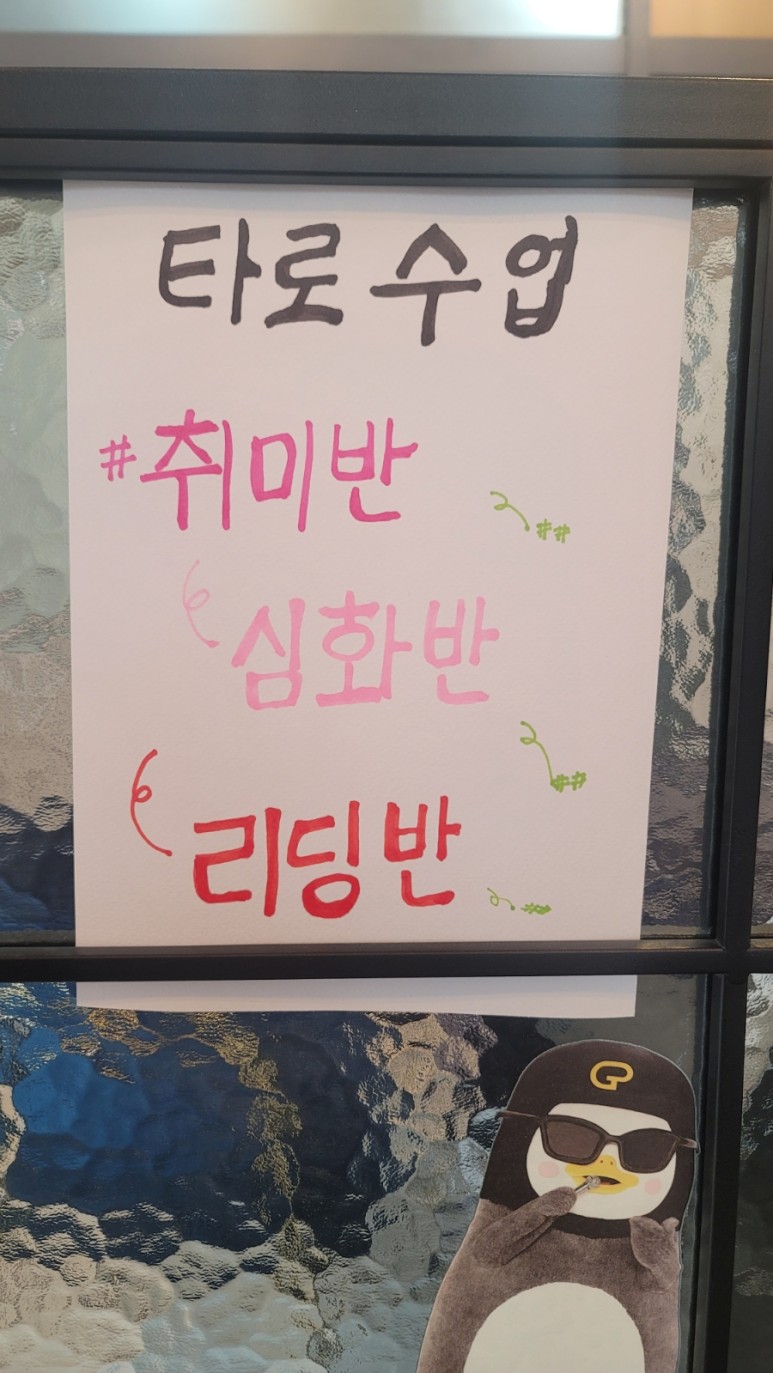 타로 수업
#취미반
##
심화반
##
리딩반
#